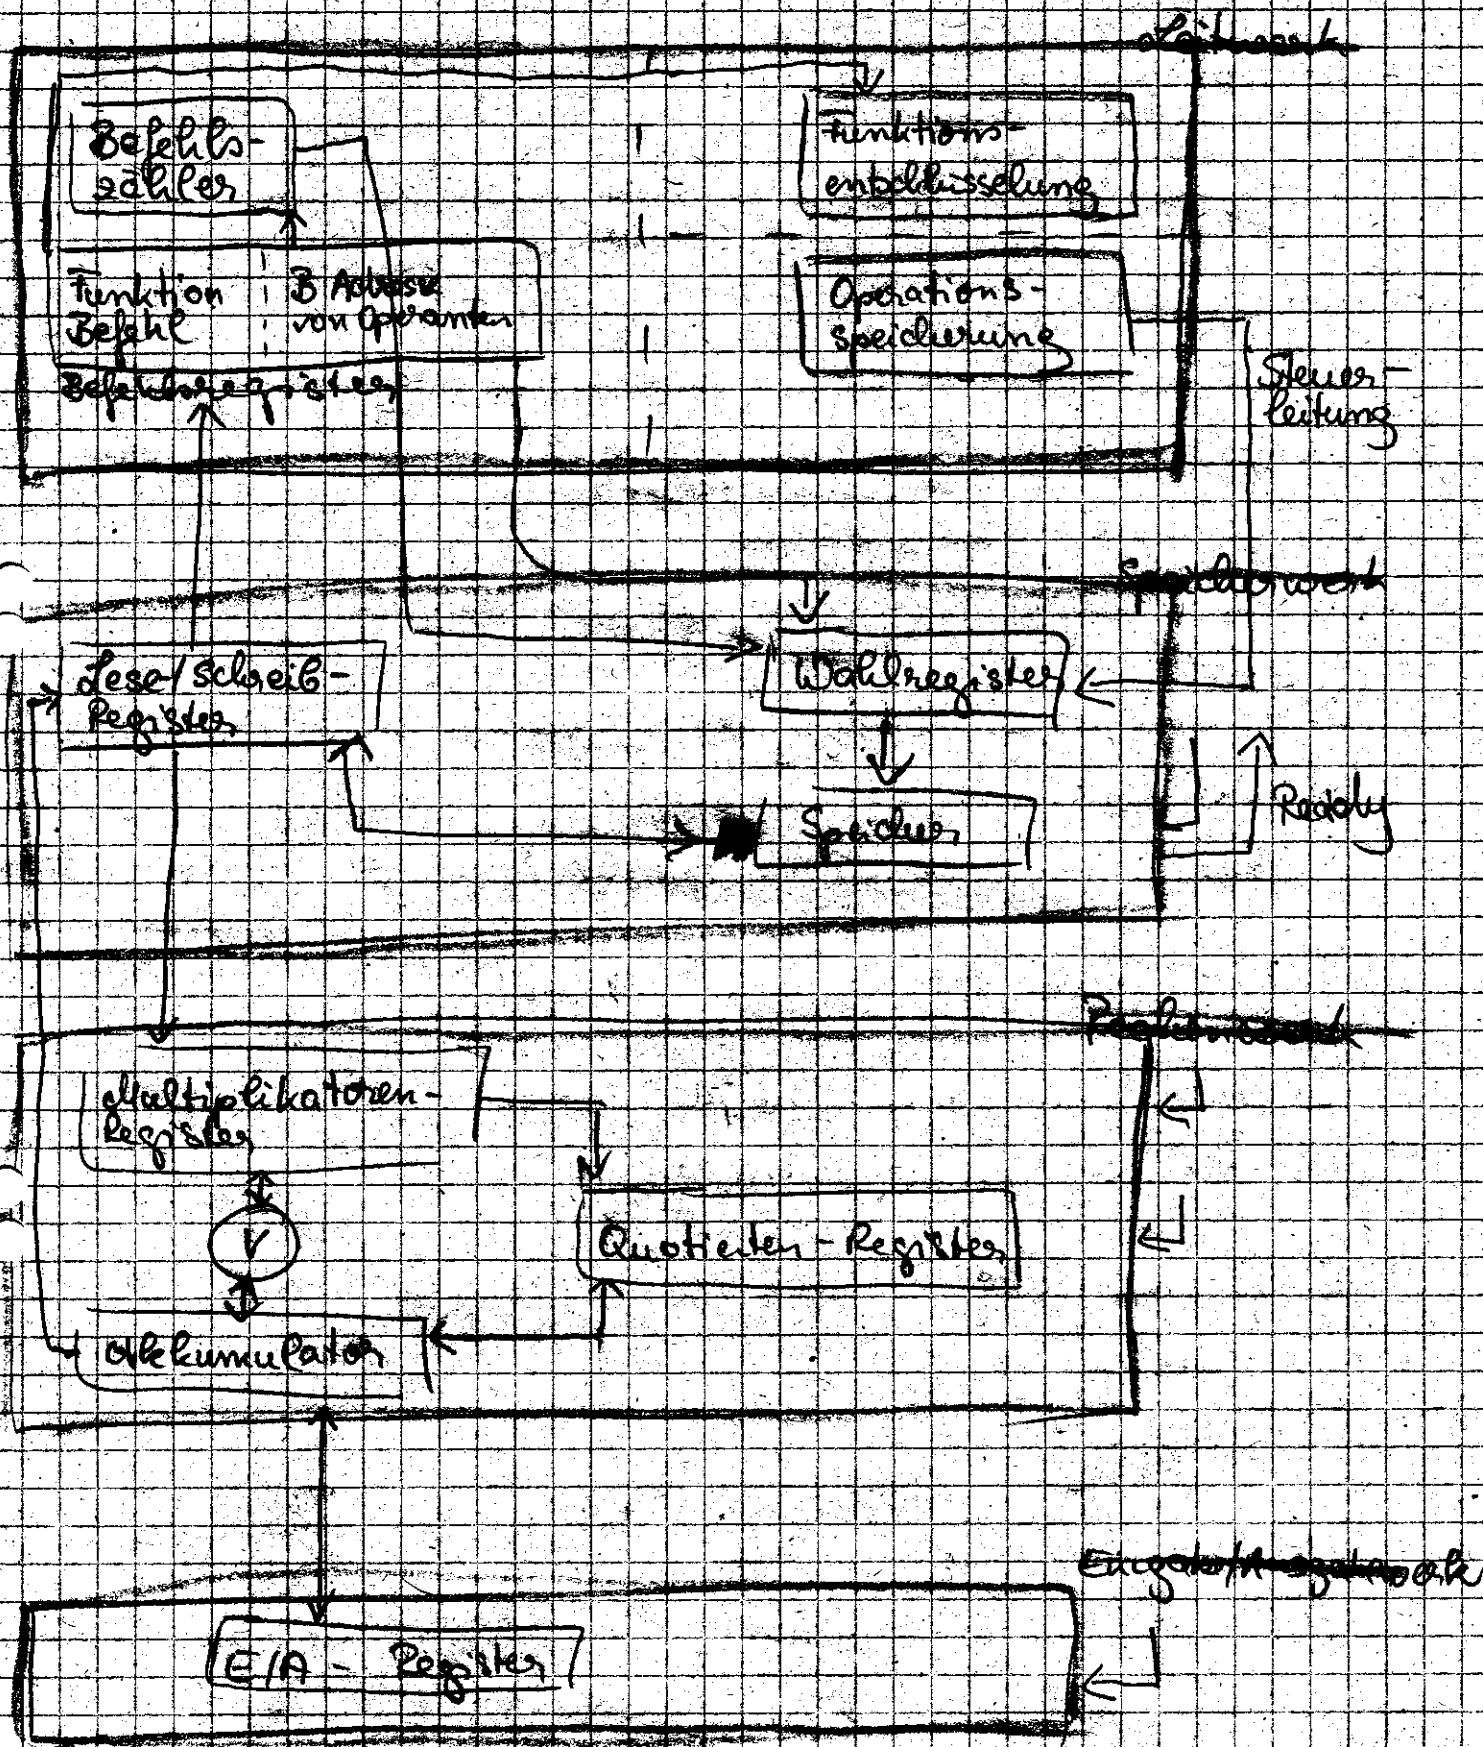 Leitwerk
Befehls-
zähler
Funktions-
entschlüsselung
Funktion
Befehl
B Adresse
von Operanten
Operations-
speicherung
Befehlsregister
Steuer-
leitung
Speicherwerk
Lese/Schreib-
Register
Wahlregister
Speicher
Ready
Rechenwerk
Multiplikatoren-
Register
V
Quotienten-Register
Akkumulator
Eingabe/Ausgabewerk
E/A - Register